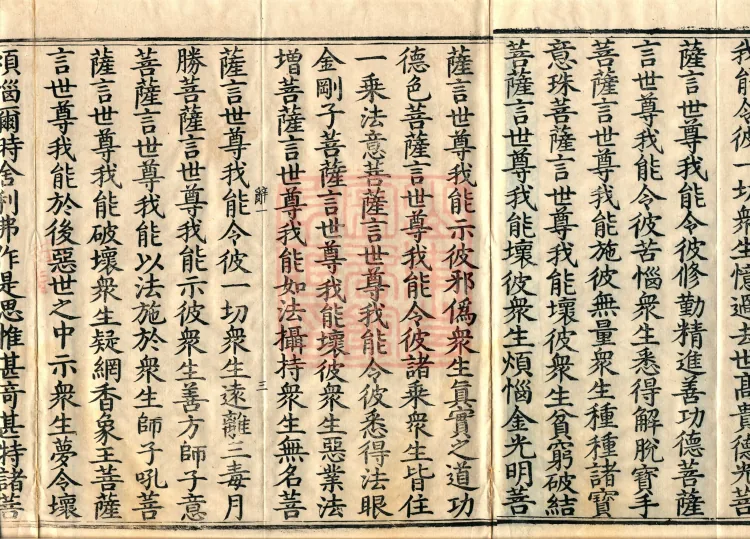 我能令彼一切衆生憶過去世高貴德光菩
薩言世尊我能令彼修勤精進善功德菩薩
言世尊我能令彼苦惱衆生悉得解脫寶手
菩薩言世尊我能施彼無量衆生種種諸寶
意珠菩薩言世尊我能壞彼衆生貧窮破結
菩薩言世尊我能壞彼衆生煩惱金光明菩
薩言世尊我能示彼邪僞衆生眞實之道功
德色菩薩言世尊我能令彼諸乘衆生皆住
一乘法意菩薩言世尊我能令彼悉得法眼
金剛子菩薩言世尊我能壞彼衆生惡業法
增菩薩言世尊我能如法攝持衆生無名菩
辭一
三
薩言世尊我能令彼一切衆生遠離三毒月
勝菩薩言世尊我能示彼衆生善方師子意
菩薩言世尊我能以法施於衆生師子吼菩
薩言世尊我能破壞衆生疑網香象王菩薩
言世尊我能於後惡世之中示衆生夢令壞
煩惱爾時舍利弗作是思惟甚奇甚特諸菩